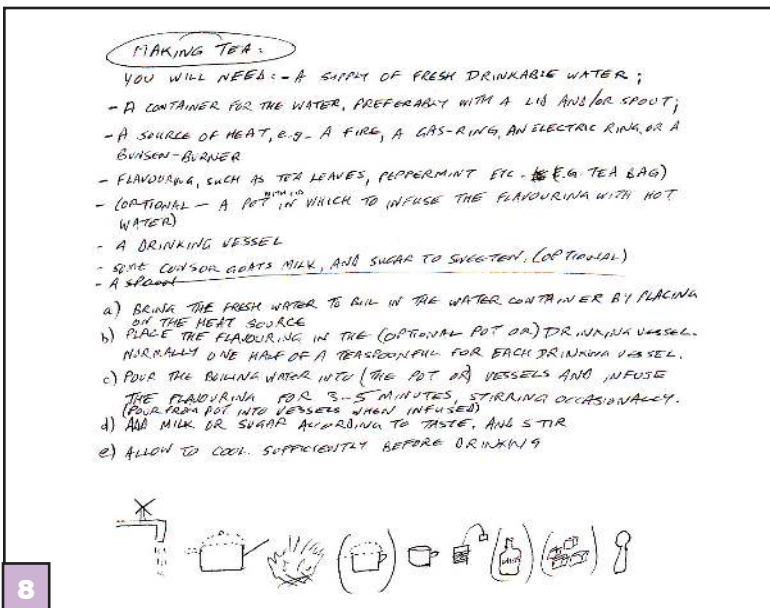 MAKING TEA:
YOU WILL NEED:- A SUPPLY OF FRESH DRINKABLE WATER;
- A CONTAINER FOR THE WATER, PREFERABLY WITH A LID AND/OR SPOUT;
- A SOURCE OF HEAT, e.g. A FIRE, A GAS-RING, AN ELECTRIC RING, OR A
BUNSEN-BURNER
- FLAVOURING, SUCH AS TEA LEAVES, PEPPERMINT ETC. E.G. TEA BAG)
- (OPTIONAL - A POT WITH LID IN WHICH TO INFUSE THE FLAVOURING WITH HOT
WATER)
- A DRINKING VESSEL
- SOME COWS OR GOATS MILK, AND SUGAR TO SWEETEN. (OPTIONAL)
- A SPOON
a) BRING THE FRESH WATER TO BOIL IN THE WATER CONTAINER BY PLACING
ON THE HEAT SOURCE
b) PLACE THE FLAVOURING IN THE (OPTIONAL POT OR) DRINKING VESSEL.
NORMALLY ONE HALF OF A TEASPOONFUL FOR EACH DRINKING VESSEL.
c) POUR THE BOILING WATER INTO (THE POT OR) VESSELS AND INFUSE
THE FLAVOURING FOR 3-5 MINUTES, STIRRING OCCASIONALLY.
(POUR FROM POT INTO VESSELS WHEN INFUSED)
d) ADD MILK OR SUGAR ACCORDING TO TASTE, AND STIR
e) ALLOW TO COOL SUFFICIENTLY BEFORE DRINKING
8